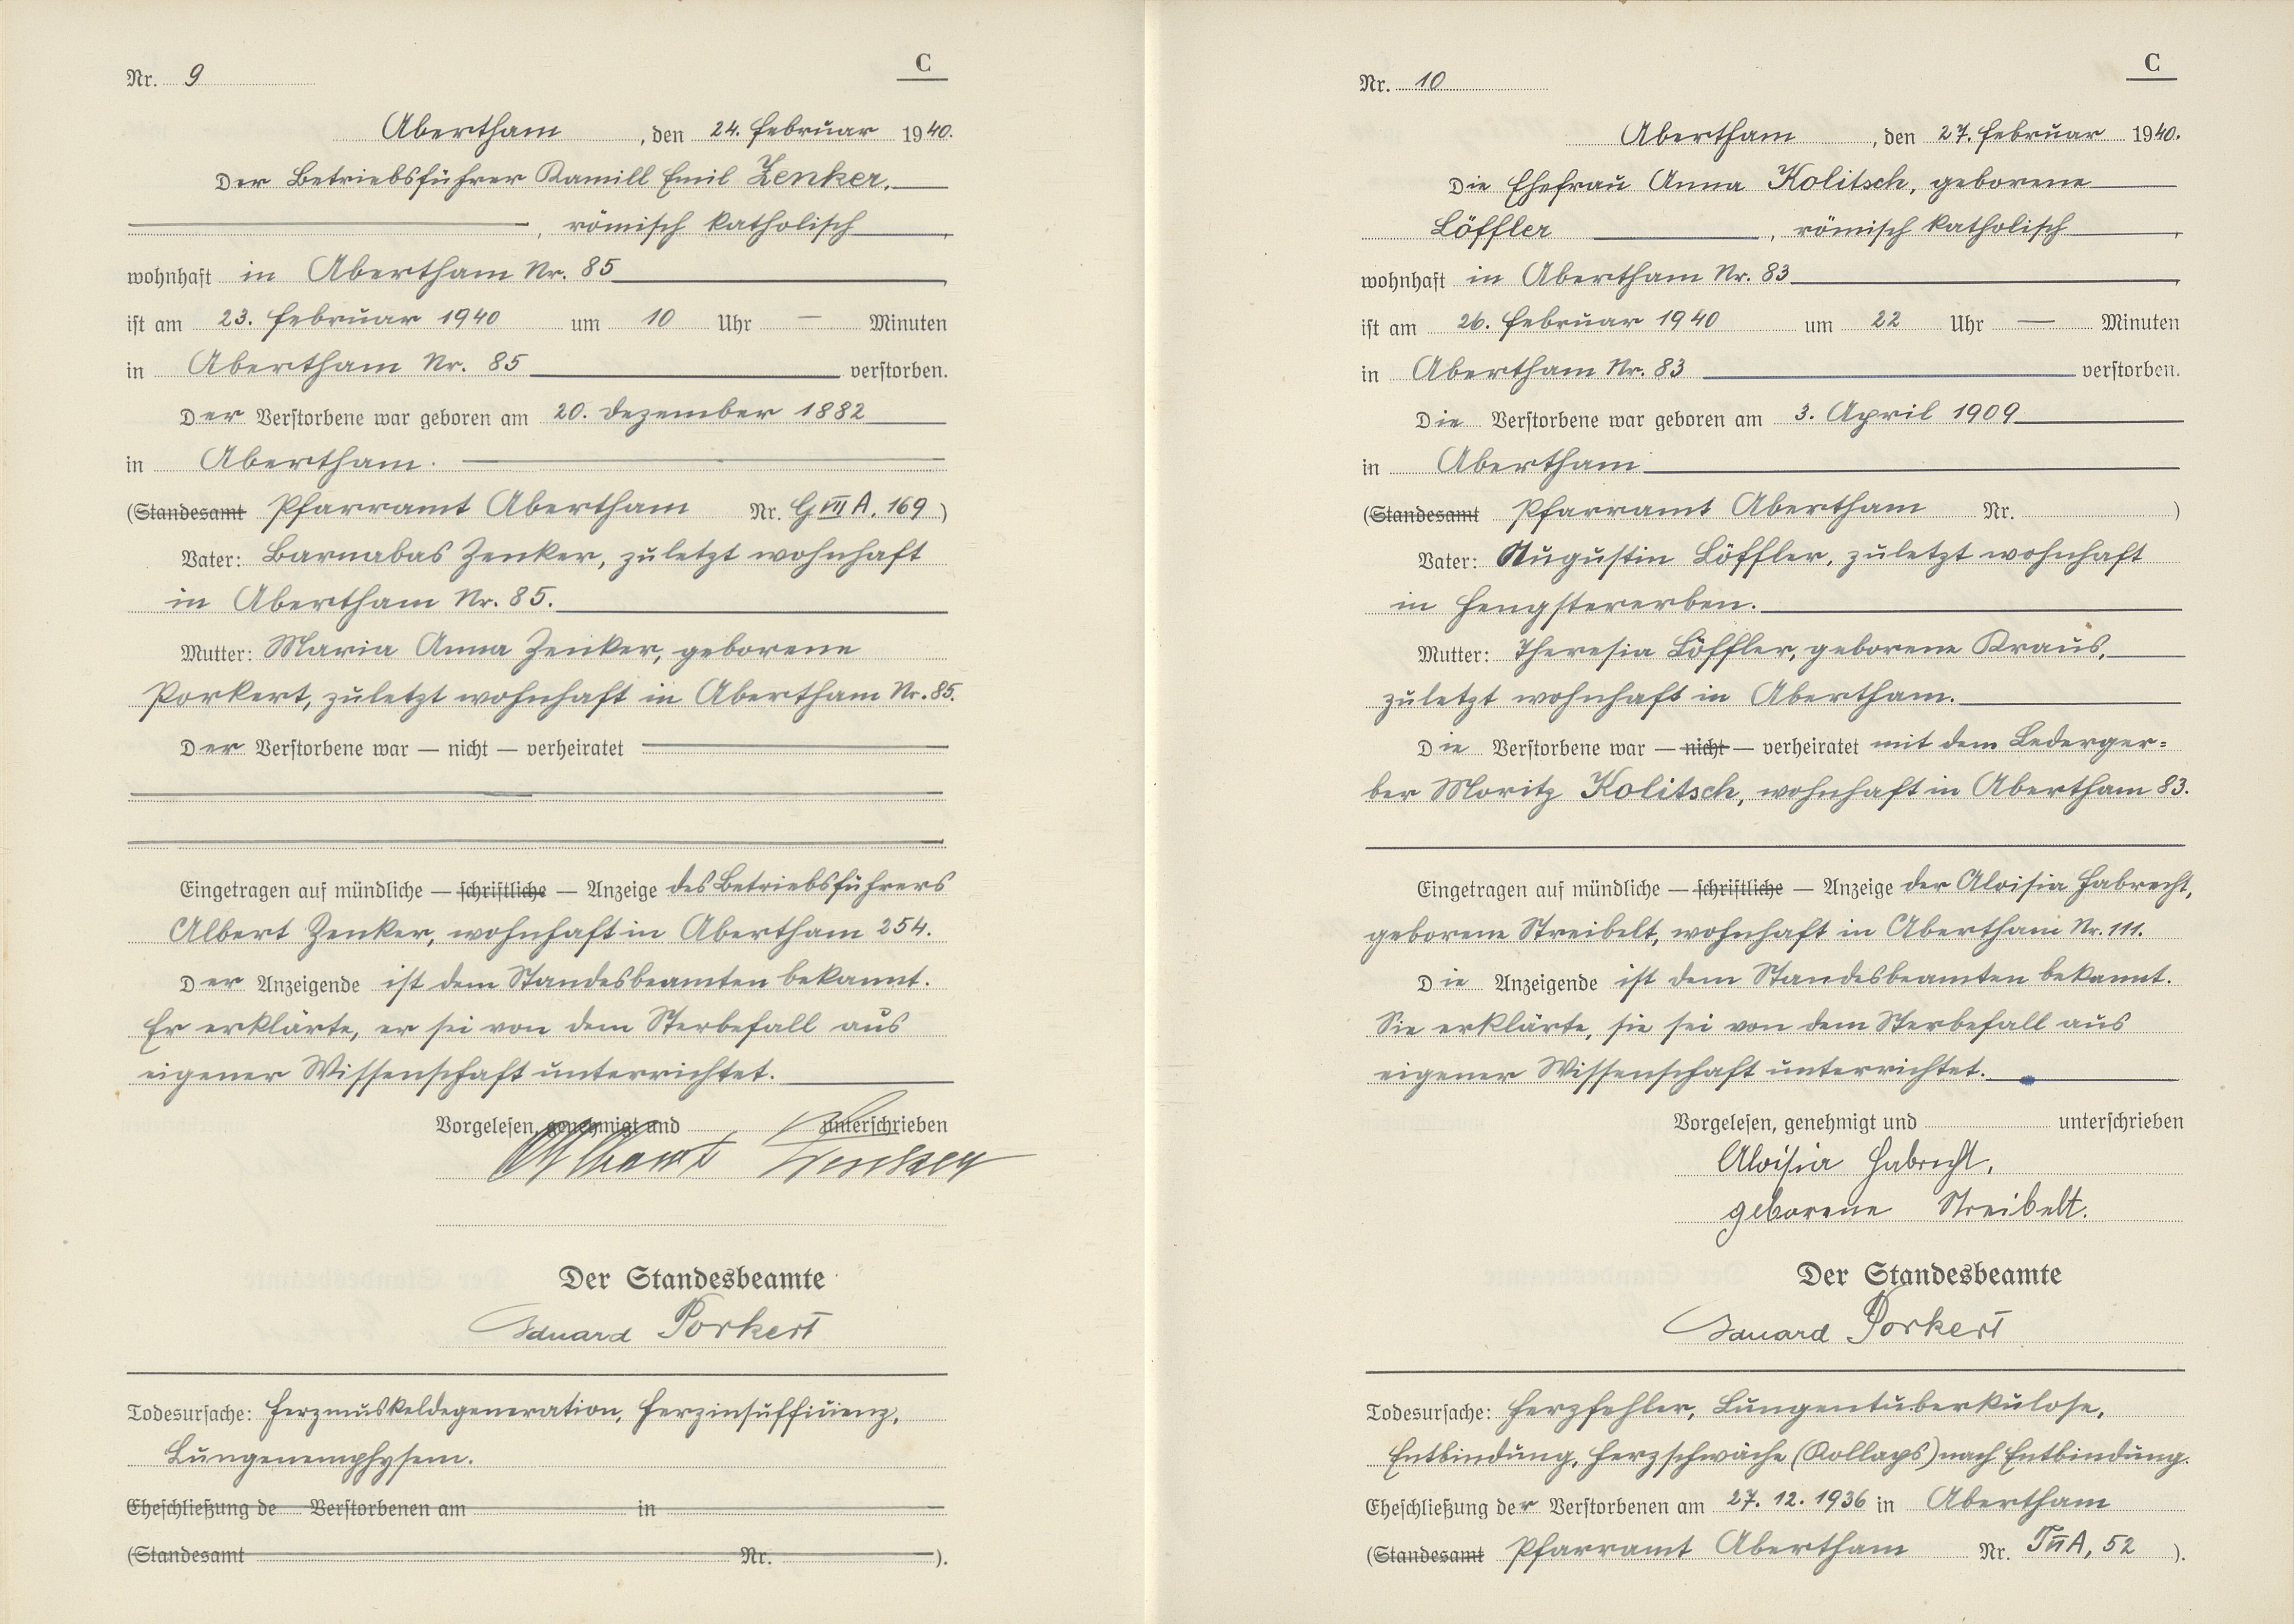 C
Nr. 9
Abertham, den 24. Februar 1940.
Der Betriebsführer Kamill Emil Zenker,
, römisch katholisch,
wohnhaft in Abertham Nr. 85,
ist am 23. Februar 1940 um 10 Uhr — Minuten
in Abertham Nr. 85 verstorben.
Der Verstorbene war geboren am 20. Dezember 1882
in Abertham.
(Standesamt Pfarramt Abertham Nr. G VII A, 169)
Vater: Barnabas Zenker, zuletzt wohnhaft
in Abertham Nr. 85.
Mutter: Maria Anna Zenker, geborene
Porkert, zuletzt wohnhaft in Abertham Nr. 85.
Der Verstorbene war — nicht — verheiratet
Eingetragen auf mündliche — schriftliche — Anzeige des Betriebsführers
Albert Zenker, wohnhaft in Abertham 254.
Der Anzeigende ist dem Standesbeamten bekannt.
Er erklärte, er sei von dem Sterbefall aus
eigener Wissenschaft unterrichtet.
Vorgelesen, genehmigt und unterschrieben
Albert Zenker
Der Standesbeamte
Eduard Porkert
Todesursache: Herzmuskeldegeneration, Herzinsuffizienz,
Lungenemphysem.
Eheschließung de Verstorbenen am in
(Standesamt Nr. ).
C
Nr. 10
Abertham, den 27. Februar 1940.
Die Ehefrau Anna Kolitsch, geborene
Löffler, römisch katholisch,
wohnhaft in Abertham Nr. 83,
ist am 26. Februar 1940 um 22 Uhr — Minuten
in Abertham Nr. 83 verstorben.
Die Verstorbene war geboren am 3. April 1909
in Abertham
(Standesamt Pfarramt Abertham Nr. )
Vater: Augustin Löffler, zuletzt wohnhaft
in Hengstererben.
Mutter: Theresia Löffler, geborene Kraus,
zuletzt wohnhaft in Abertham.
Die Verstorbene war — nicht — verheiratet mit dem Lederger=
ber Moritz Kolitsch, wohnhaft in Abertham 83.
Eingetragen auf mündliche — schriftliche — Anzeige der Aloisia Habrecht,
geborene Streibelt, wohnhaft in Abertham Nr. 111.
Die Anzeigende ist dem Standesbeamten bekannt.
Sie erklärte, sie sei von dem Sterbefall aus
eigener Wissenschaft unterrichtet.
Vorgelesen, genehmigt und unterschrieben
Aloisia Habrecht,
geborene Streibelt.
Der Standesbeamte
Eduard Porkert
Todesursache: Herzfehler, Lungentuberkulose,
Entbindung, Herzschwäche (Kollaps) nach Entbindung.
Eheschließung der Verstorbenen am 27. 12. 1936 in Abertham
(Standesamt Pfarramt Abertham Nr. T II A, 52 ).